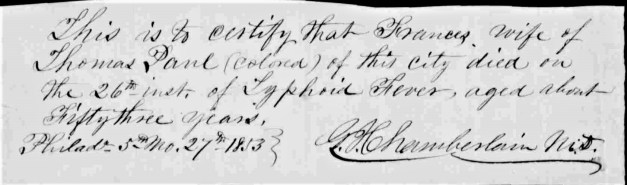 This is to certify that Frances, wife of
Thomas Pane (colored) of this city died on
the 26th inst. of Typhoid Fever, aged about
Fifty three years.
Philada 5th Mo. 27th 1853 } Chamberlain M.D.